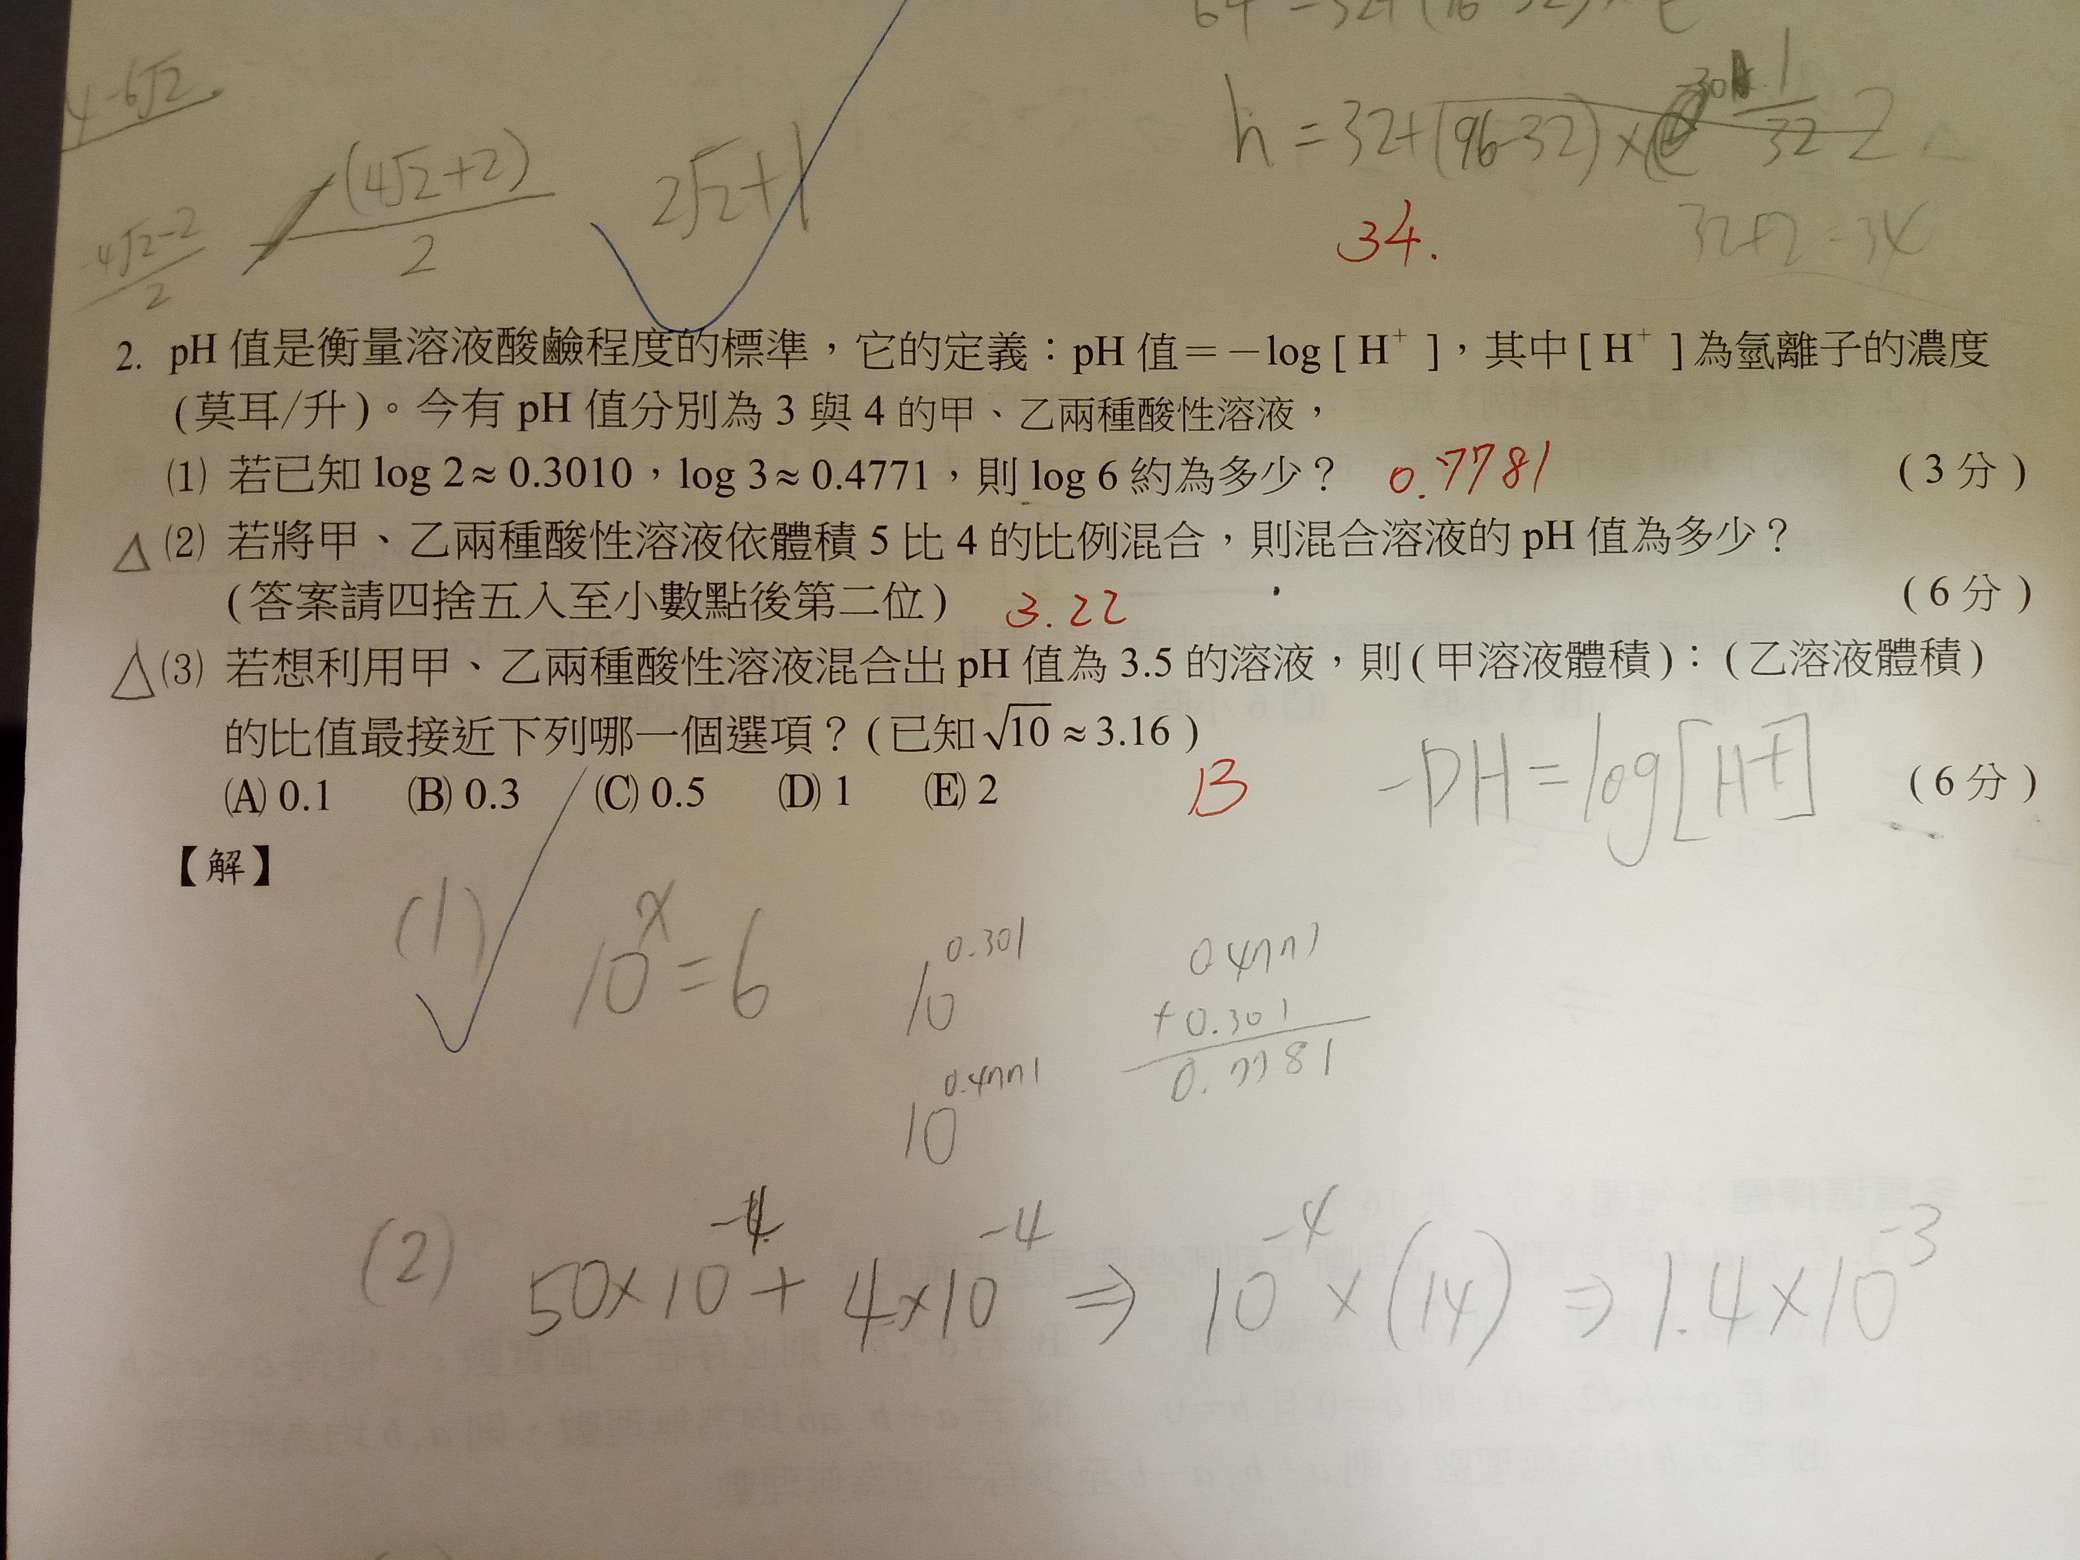 4-6√2
-4√2-2
2
(4√2+2)
2
2√2+1
h = 32+(96-32)×
1
32
2
34.
32+2=34
2. pH 值是衡量溶液酸鹼程度的標準，它的定義：pH 值＝－log [ H⁺ ]，其中 [ H⁺ ] 為氫離子的濃度
(莫耳/升)。今有 pH 值分別為 3 與 4 的甲、乙兩種酸性溶液，
⑴ 若已知 log 2≈0.3010，log 3≈0.4771，則 log 6 約為多少？ 0.7781 (3 分)
△ ⑵ 若將甲、乙兩種酸性溶液依體積 5 比 4 的比例混合，則混合溶液的 pH 值為多少？
(答案請四捨五入至小數點後第二位) 3.22 (6 分)
△ ⑶ 若想利用甲、乙兩種酸性溶液混合出 pH 值為 3.5 的溶液，則(甲溶液體積)：(乙溶液體積)
的比值最接近下列哪一個選項？(已知 √10 ≈3.16 )
(A) 0.1 (B) 0.3 (C) 0.5 (D) 1 (E) 2 B (6 分)
-PH=log[H+]
【解】
(1) 10^x=6
10^0.301
10^0.4771
0.4771
+0.301
0.7781
(2) 50×10^-4 + 4×10^-4 ⇒ 10^-4×(14) ⇒ 1.4×10^-3